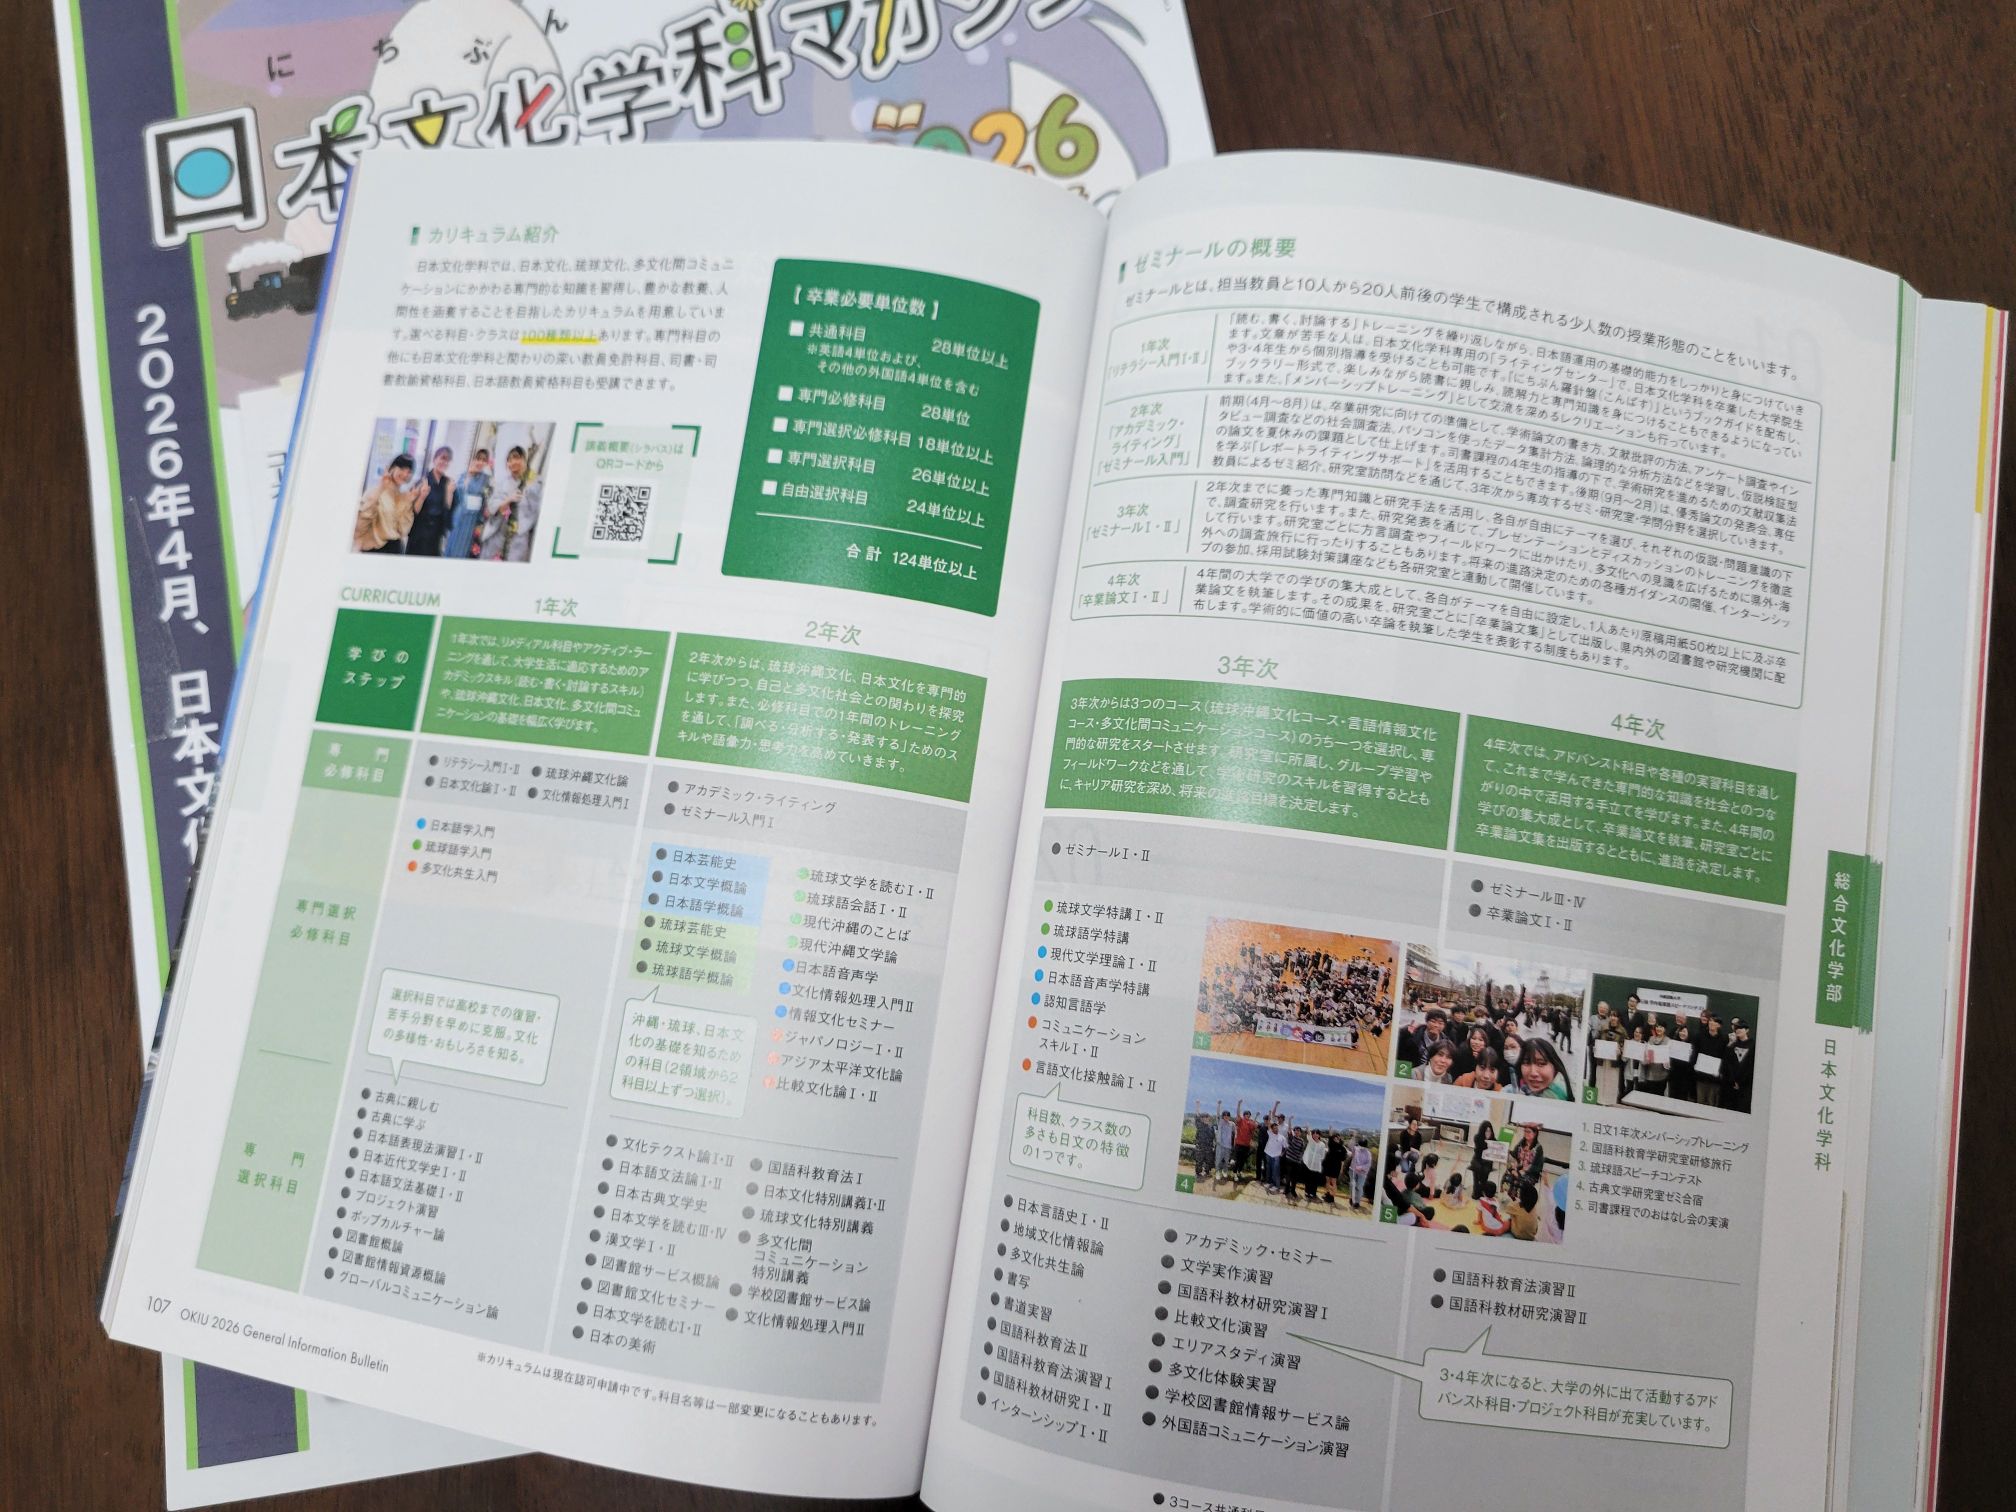 にちぶん
日本文化学科マガジン
2026
2026年4月、日本文化
カリキュラム紹介
日本文化学科では、日本文化、琉球文化、多文化間コミュニ
ケーションにかかわる専門的な知識を習得し、豊かな教養、人
間性を涵養することを目指したカリキュラムを用意していま
す。選べる科目・クラスは100種類以上あります。専門科目の
他にも日本文化学科と関わりの深い教員免許科目、司書・司
書教諭資格科目、日本語教員資格科目も受講できます。
講義概要(シラバス)は
QRコードから
【 卒業必要単位数 】
共通科目 28単位以上
※英語4単位および、
その他の外国語4単位を含む
専門必修科目 28単位
専門選択必修科目 18単位以上
専門選択科目 26単位以上
自由選択科目 24単位以上
合計 124単位以上
CURRICULUM
学びの
ステップ
1年次
1年次では、リメディアル科目やアクティブ・ラー
ニングを通して、大学生活に適応するためのア
カデミックスキル(読む・書く・討論するスキル)
や、琉球沖縄文化、日本文化、多文化間コミュ
ニケーションの基礎を幅広く学びます。
2年次
2年次からは、琉球沖縄文化、日本文化を専門的
に学びつつ、自己と多文化社会との関わりを探究
します。また、必修科目での1年間のトレーニング
を通して、「調べる・分析する・発表する」ためのス
キルや語彙力・思考力を高めていきます。
専門
必修科目
●リテラシー入門Ⅰ・Ⅱ ●琉球沖縄文化論
●日本文化論Ⅰ・Ⅱ ●文化情報処理入門Ⅰ
●アカデミック・ライティング
●ゼミナール入門Ⅰ
専門選択
必修科目
●日本語学入門
●琉球語学入門
●多文化共生入門
●日本芸能史
●日本文学概論
●日本語学概論
●琉球芸能史
●琉球文学概論
●琉球語学概論
●琉球文学を読むⅠ・Ⅱ
●琉球語会話Ⅰ・Ⅱ
●現代沖縄のことば
●現代沖縄文学論
●日本語音声学
●文化情報処理入門Ⅱ
●情報文化セミナー
●ジャパノロジーⅠ・Ⅱ
●アジア太平洋文化論
●比較文化論Ⅰ・Ⅱ
選択科目では高校までの復習・
苦手分野を早めに克服。文化
の多様性・おもしろさを知る。
沖縄・琉球、日本文
化の基礎を知るため
の科目(2領域から2
科目以上ずつ選択)。
専門
選択科目
●古典に親しむ
●古典に学ぶ
●日本語表現法演習Ⅰ・Ⅱ
●日本近代文学史Ⅰ・Ⅱ
●日本語文法基礎Ⅰ・Ⅱ
●プロジェクト演習
●ポップカルチャー論
●図書館概論
●図書館情報資源概論
●グローバルコミュニケーション論
●文化テクスト論Ⅰ・Ⅱ
●日本語文法論Ⅰ・Ⅱ
●日本古典文学史
●日本文学を読むⅢ・Ⅳ
●漢文学Ⅰ・Ⅱ
●図書館サービス概論
●図書館文化セミナー
●日本文学を読むⅠ・Ⅱ
●日本の美術
●国語科教育法Ⅰ
●日本文化特別講義Ⅰ・Ⅱ
●琉球文化特別講義
●多文化間
コミュニケーション
特別講義
●学校図書館サービス論
●文化情報処理入門Ⅱ
107 OKIU 2026 General Information Bulletin
※カリキュラムは現在認可申請中です。科目名等は一部変更になることもあります。
ゼミナールの概要
ゼミナールとは、担当教員と10人から20人前後の学生で構成される少人数の授業形態のことをいいます。
1年次
「リテラシー入門Ⅰ・Ⅱ」
「読む、書く、討論する」トレーニングを繰り返しながら、日本語運用の基礎的能力をしっかりと身につけていき
ます。文章が苦手な人は、日本文化学科専用の「ライティングセンター」で、日本文化学科を卒業した大学院生
や3・4年生から個別指導を受けることも可能です。「にちぶん羅針盤(こんぱす)」というブックガイドを配布し、
ブックラリー形式で、楽しみながら読書に親しみ、読解力と専門知識を身につけることもできるようになってい
ます。また、「メンバーシップトレーニング」として交流を深めるレクリエーションも行っています。
2年次
「アカデミック・
ライティング」
「ゼミナール入門」
前期(4月〜8月)は、卒業研究に向けての準備として、学術論文の書き方、文献批評の方法、アンケート調査やイン
タビュー調査などの社会調査法、パソコンを使ったデータ集計方法、論理的な分析方法などを学習し、仮説検証型
の論文を夏休みの課題として仕上げます。司書課程の4年生の指導の下で、学術研究を進めるための文献収集法
を学ぶ「レポートライティングサポート」を活用することもできます。後期(9月〜2月)は、優秀論文の発表会、専任
教員によるゼミ紹介、研究室訪問などを通じて、3年次から専攻するゼミ・研究室・学問分野を選択していきます。
3年次
「ゼミナールⅠ・Ⅱ」
2年次までに養った専門知識と研究手法を活用し、各自が自由にテーマを選び、それぞれの仮説・問題意識の下
で、調査研究を行います。また、研究発表を通じて、プレゼンテーションとディスカッションのトレーニングを徹底
して行います。研究室ごとに方言調査やフィールドワークに出かけたり、多文化への見識を広げるために県外・海
外への調査旅行に行ったりすることもあります。将来の進路決定のための各種ガイダンスの開催、インターンシッ
プの参加、採用試験対策講座なども各研究室と連動して開催しています。
4年次
「卒業論文Ⅰ・Ⅱ」
4年間の大学での学びの集大成として、各自がテーマを自由に設定し、1人あたり原稿用紙50枚以上に及ぶ卒
業論文を執筆します。その成果を、研究室ごとに「卒業論文集」として出版し、県内外の図書館や研究機関に配
布します。学術的に価値の高い卒論を執筆した学生を表彰する制度もあります。
3年次
3年次からは3つのコース(琉球沖縄文化コース・言語情報文化
コース・多文化間コミュニケーションコース)のうち一つを選択し、専
門的な研究をスタートさせます。研究室に所属し、グループ学習や
フィールドワークなどを通して、学術研究のスキルを習得するととも
に、キャリア研究を深め、将来の進路目標を決定します。
4年次
4年次では、アドバンスト科目や各種の実習科目を通し
て、これまで学んできた専門的な知識を社会とのつな
がりの中で活用する手立てを学びます。また、4年間の
学びの集大成として、卒業論文を執筆、研究室ごとに
卒業論文集を出版するとともに、進路を決定します。
●ゼミナールⅠ・Ⅱ
●ゼミナールⅢ・Ⅳ
●卒業論文Ⅰ・Ⅱ
●琉球文学特講Ⅰ・Ⅱ
●琉球語学特講
●現代文学理論Ⅰ・Ⅱ
●日本語音声学特講
●認知言語学
●コミュニケーション
スキルⅠ・Ⅱ
●言語文化接触論Ⅰ・Ⅱ
科目数、クラス数の
多さも日文の特徴
の1つです。
1
2
3
4
5
1. 日文1年次メンバーシップトレーニング
2. 国語科教育学研究室研修旅行
3. 琉球語スピーチコンテスト
4. 古典文学研究室ゼミ合宿
5. 司書課程でのおはなし会の実演
●日本言語史Ⅰ・Ⅱ
●地域文化情報論
●多文化共生論
●書写
●書道実習
●国語科教育法Ⅱ
●国語科教育法演習Ⅰ
●国語科教材研究Ⅰ・Ⅱ
●インターンシップⅠ・Ⅱ
●アカデミック・セミナー
●文学実作演習
●国語科教材研究演習Ⅰ
●比較文化演習
●エリアスタディ演習
●多文化体験実習
●学校図書館情報サービス論
●外国語コミュニケーション演習
●国語科教育法演習Ⅱ
●国語科教材研究演習Ⅱ
3・4年次になると、大学の外に出て活動するアド
バンスト科目・プロジェクト科目が充実しています。
●3コース共通科目
総合文化学部 日本文化学科